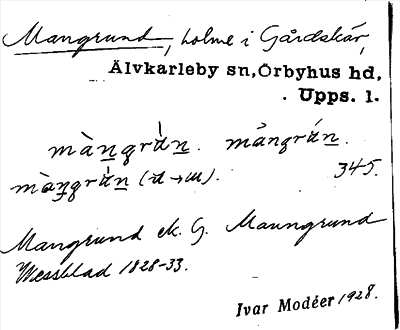 Mangrund, holme i Gårdskär,
Älvkarleby sn, Örbyhus hd,
Upps. l.
màngrùn. mángrún.
màngrùn (u → ɯ). 345.
Mangrund ek. G. Maungrund
Messblad 1828-33.
Ivar Modéer 1928.